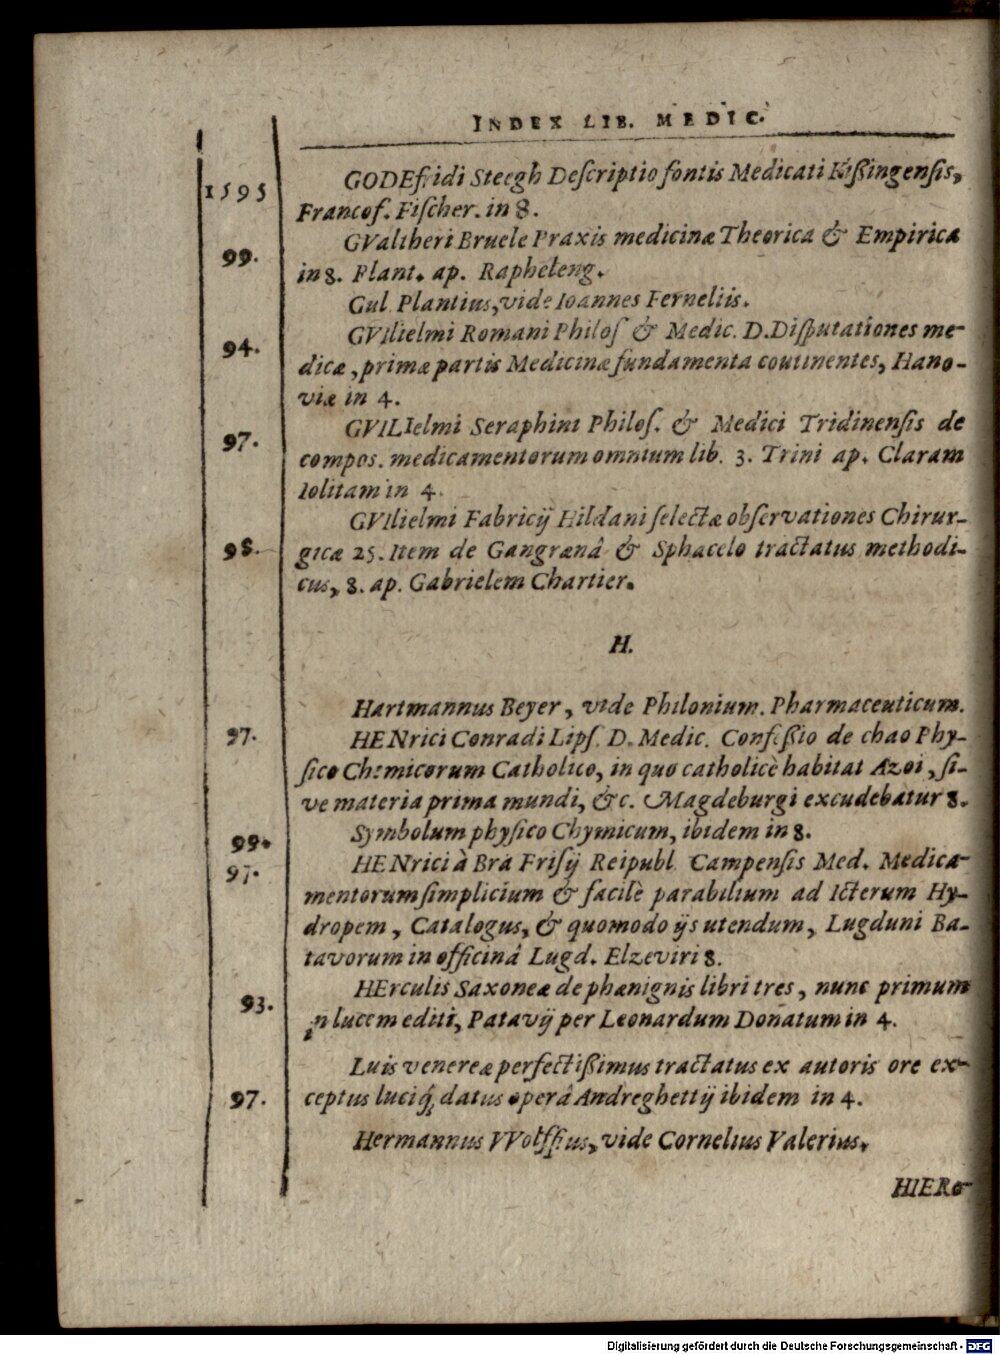 INDEX LIB. MEDIC.
1595 GODEfridi Steegh Deſcriptio fontis Medicati Kißingenſis,
Francof. Fiſcher. in 8.
99. GValtheri Bruele Praxis medicinæ Theorica & Empirica
in 8. Plant. ap. Rapheleng.
Gul. Plantius, vide Ioannes Ferneliis.
94. GVIlielmi Romani Philoſ & Medic. D. Diſputationes me-
dicæ, primæ partis Medicinæ fundamenta continentes, Hano-
viæ in 4.
97. GVILIelmi Seraphini Philoſ. & Medici Tridinenſis de
compos. medicamentorum omnium lib. 3. Trini ap. Claram
Iolitam in 4.
GVIlielmi Fabricij Hildani ſelectæ obſervationes Chirur-
98. gicæ 25. Item de Gangrænâ & Sphacelo tractatus methodi-
cus, 8. ap. Gabrielem Chartier.
H.
Hartmannus Beyer, vide Philonium. Pharmaceuticum.
97. HENrici Conradi Lipſ. D. Medic. Confeßio de chao Phy-
ſico Chemicorum Catholico, in quo catholicè habitat Azoi, ſi-
ve materia prima mundi, &c. Magdeburgi excudebatur 8.
99. Symbolum phyſico Chymicum, ibidem in 8.
97. HENrici à Bra Friſij Reipubl. Campenſis Med. Medica-
mentorum ſimplicium & facilè parabilium ad Icterum Hy-
dropem, Catalogus, & quomodo ijs utendum, Lugduni Ba-
tavorum in officinâ Lugd. Elzeviri 8.
93. HErculis Saxoneæ de phænignis libri tres, nunc primum
in lucem editi, Patavij per Leonardum Donatum in 4.
Luis venereæ perfectißimus tractatus ex autoris ore ex-
97. ceptus luciq́; datus operâ Andreghettij ibidem in 4.
Hermannus VVolffius, vide Cornelius Valerius.
HIERo-
Digitalisierung gefördert durch die Deutsche Forschungsgemeinschaft - DFG